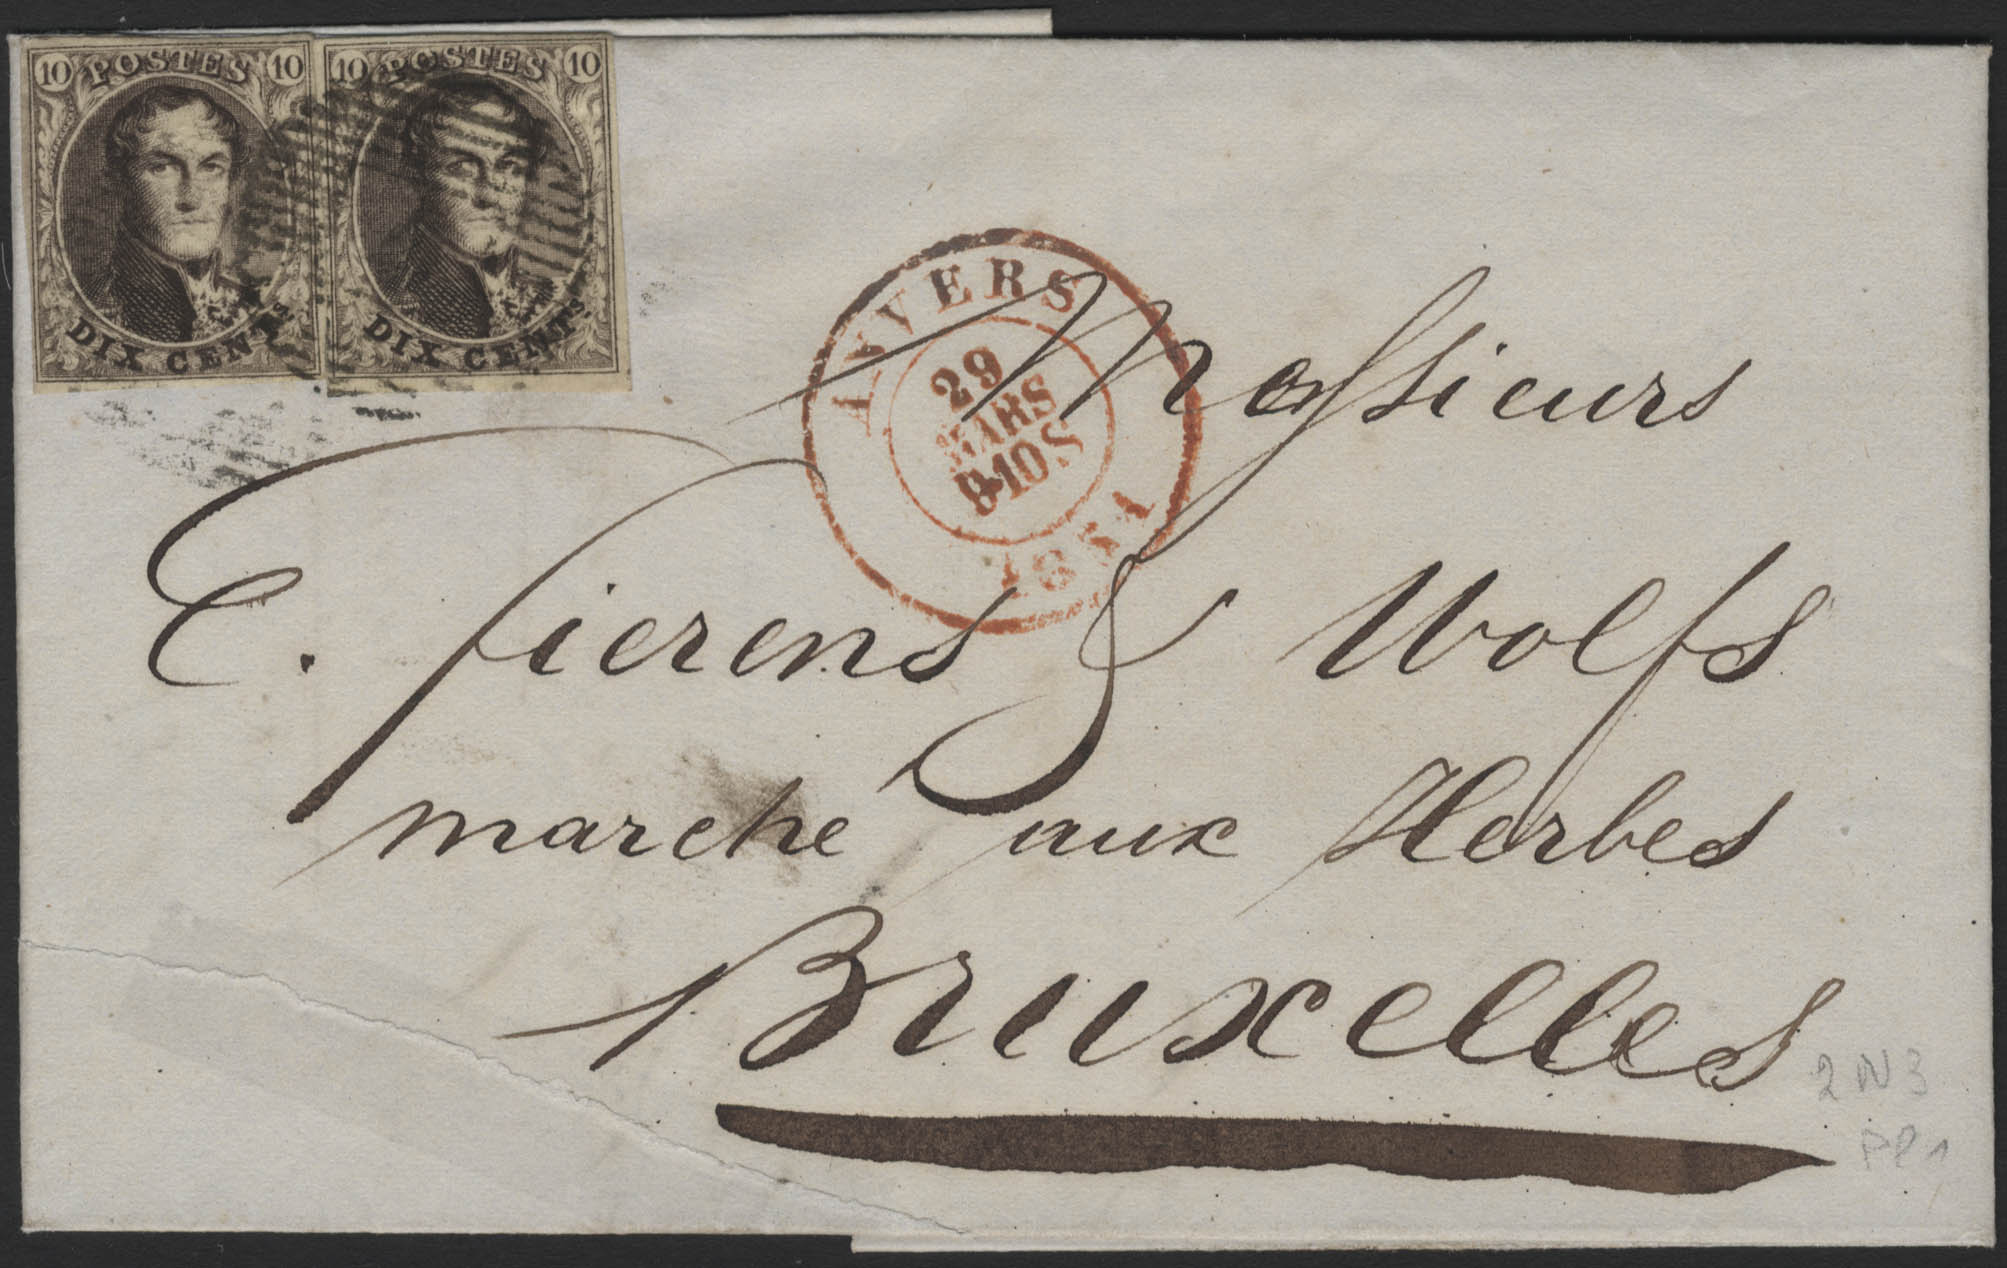 10 POSTES 10
DIX CENTS
10 POSTES 10
DIX CENTS
ANVERS
29
MARS
8-10S
1851
Messieurs
E. Fierens & Wolfs
marche aux Herbes
Bruxelles
2 N 3
Pl 1